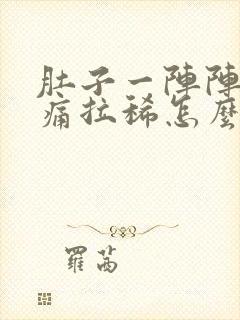 肚子一陣陣
痛拉稀怎麼
羅茜